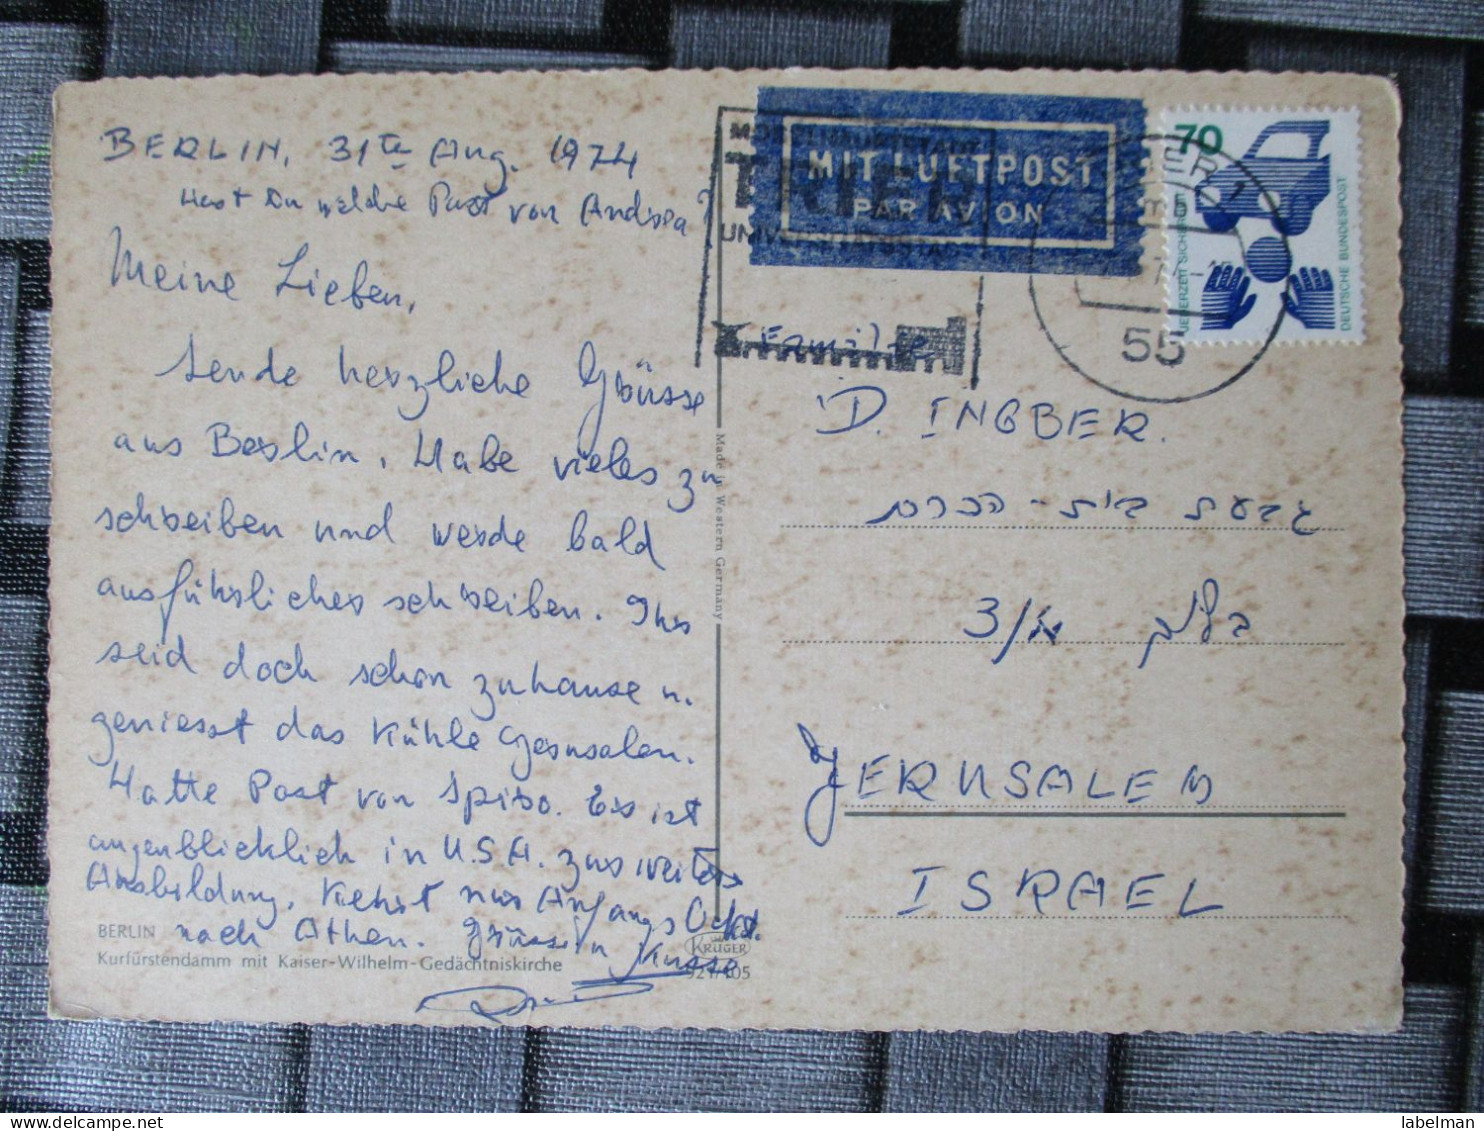 BERLIN, 31te Aug. 1974
Hast Du welche Post von Andrea?
Meine Lieben,
Sende herzliche Grüsse
aus Berlin. Habe vieles zu
schreiben und werde bald
ausführlicher schreiben. Ihr
seid doch schon zuhause u.
geniesst das kühle Jerusalem.
Hatte Post von Spiro. Er ist
augenblicklich in U.S.A. zur weiters
Ausbildung. Kehrt nur Anfangs Okt.
nach Athen. Grüsse u Küsse
BERLIN
Kurfürstendamm mit Kaiser-Wilhelm-Gedächtniskirche
KRÜGER
921/105
Made in Western Germany
TRIER
UNIVERSITÄTSSTADT
MIT LUFTPOST
PAR AVION
55
70
JEDERZEIT SICHERHEIT
DEUTSCHE BUNDESPOST
Familie
D. INGBER.
גבעת בית-הכרם
בלוק 3/א
JERUSALEM
ISRAEL
labelman